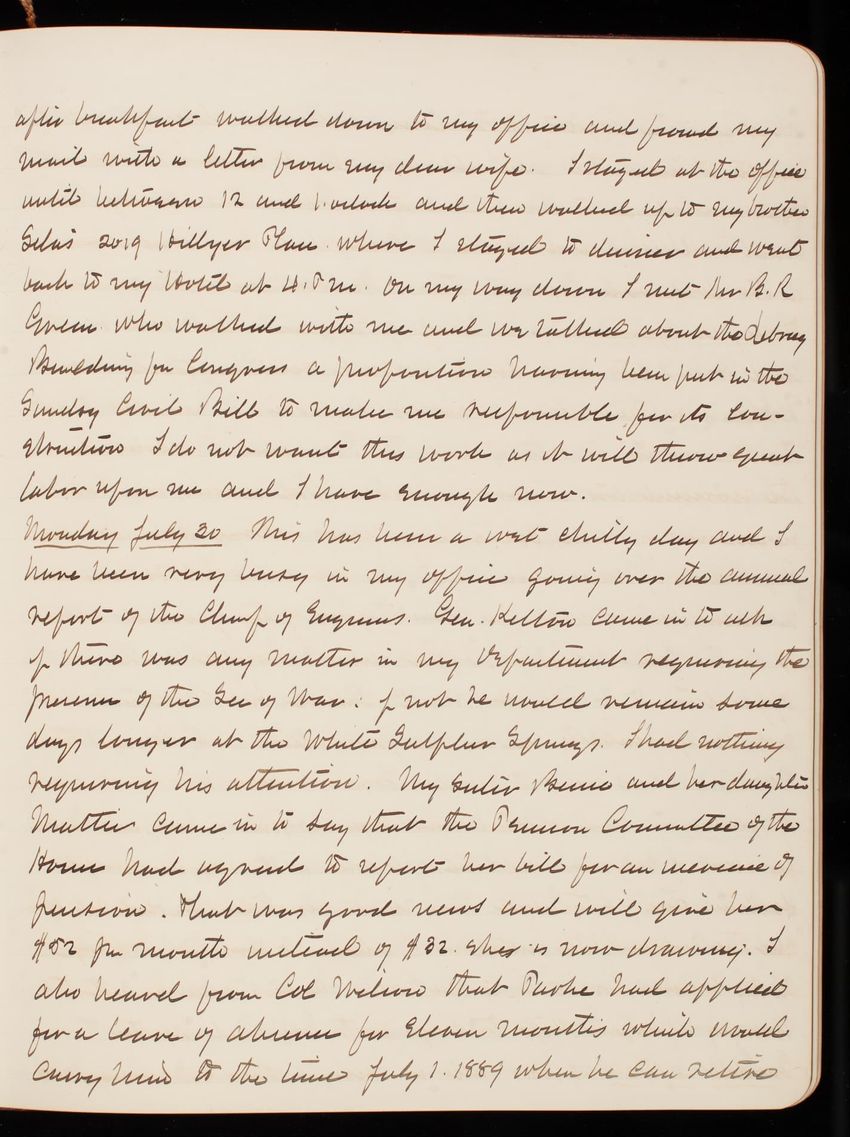 after breakfast walked down to my office and found my
mail with a letter from my dear wife. I stayed at the office
until between 12 and 1. oclock and then walked up to my brother
Silas 2019 Hillyer Place where I stayed to dinner and went
back to my Hotel at 4. P m. On my way down I met Mr B. R
Green who walked with me and we talked about the Library
Building for Congress a proposition having been put in the
Sundry Civil Bill to make me responsible for its con-
struction I do not want this work as it will throw great
labor upon me and I have enough now.
Monday July 30 This has been a wet chilly day and I
have been very busy in my office going over the annual
report of the Chief of Engineers. Gen. Kelton came in to ask
if there was any matter in my Department requiring the
presence of the Sec of War: if not he would remain some
days longer at the White Sulphur Springs. I had nothing
requiring his attention. My sister and her daughter
Mattie came in to say that the Pension Committee of the
House had agreed to report her bill for an increase of
pension. That was good news and will give her
$52 per month instead of $32. she is now drawing. I
also heard from Col Wilson that Parke had applied
for a leave of absence for eleven months which would
carry him to the time July 1. 1889 when he can retire